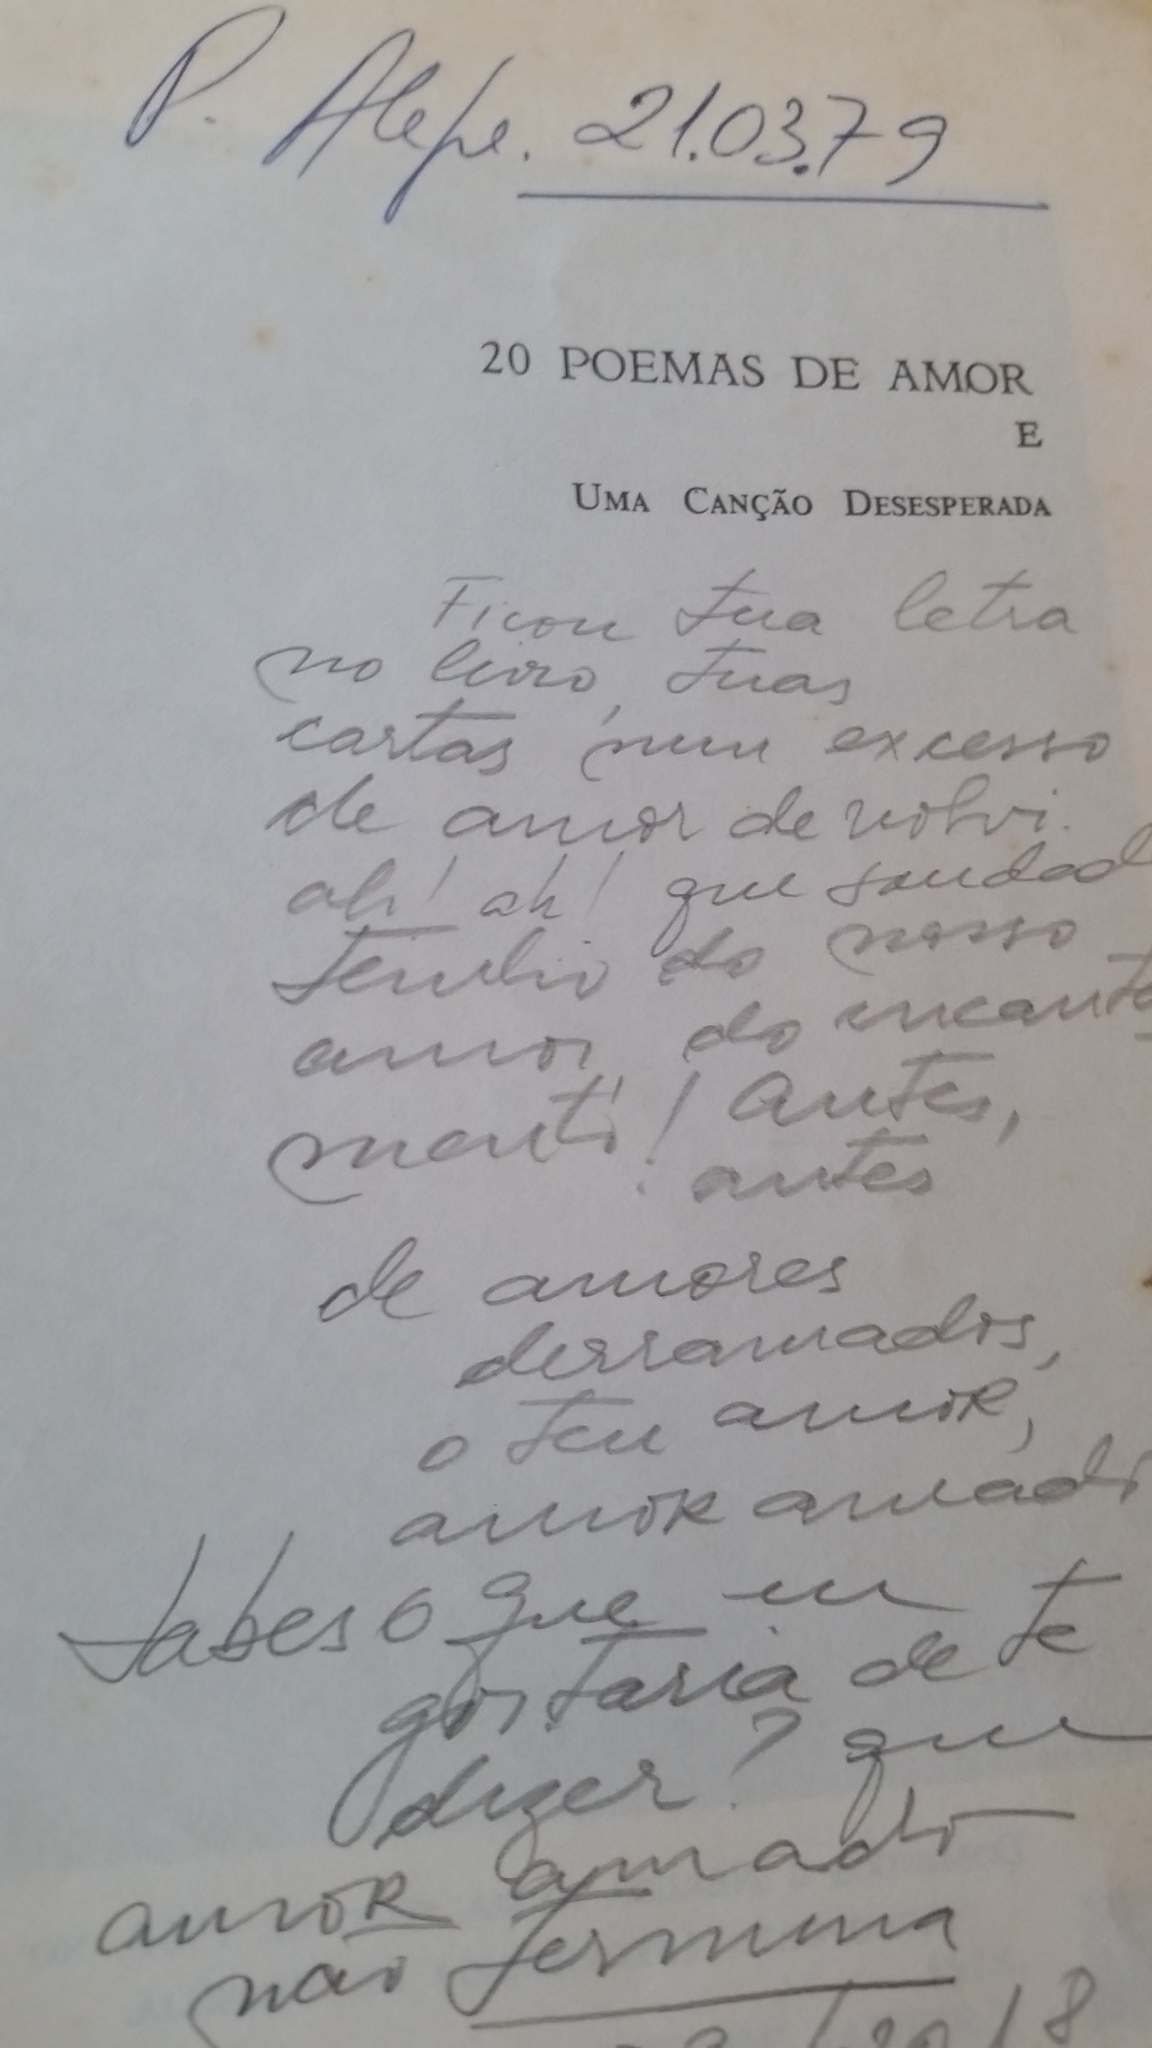 P. Alegre. 21.03.79
20 POEMAS DE AMOR
E
UMA CANÇÃO DESESPERADA
Ficou tua letra
no livro, tuas
cartas num excesso
de amor devolvi.
ah! ah! que saudad
tenho do nosso
amor, do encanta
mento! Antes,
antes
de amores
derramados,
o teu amor,
amor amado
Sabes o que eu
gostaria de te
dizer? que
amor amado
não termina